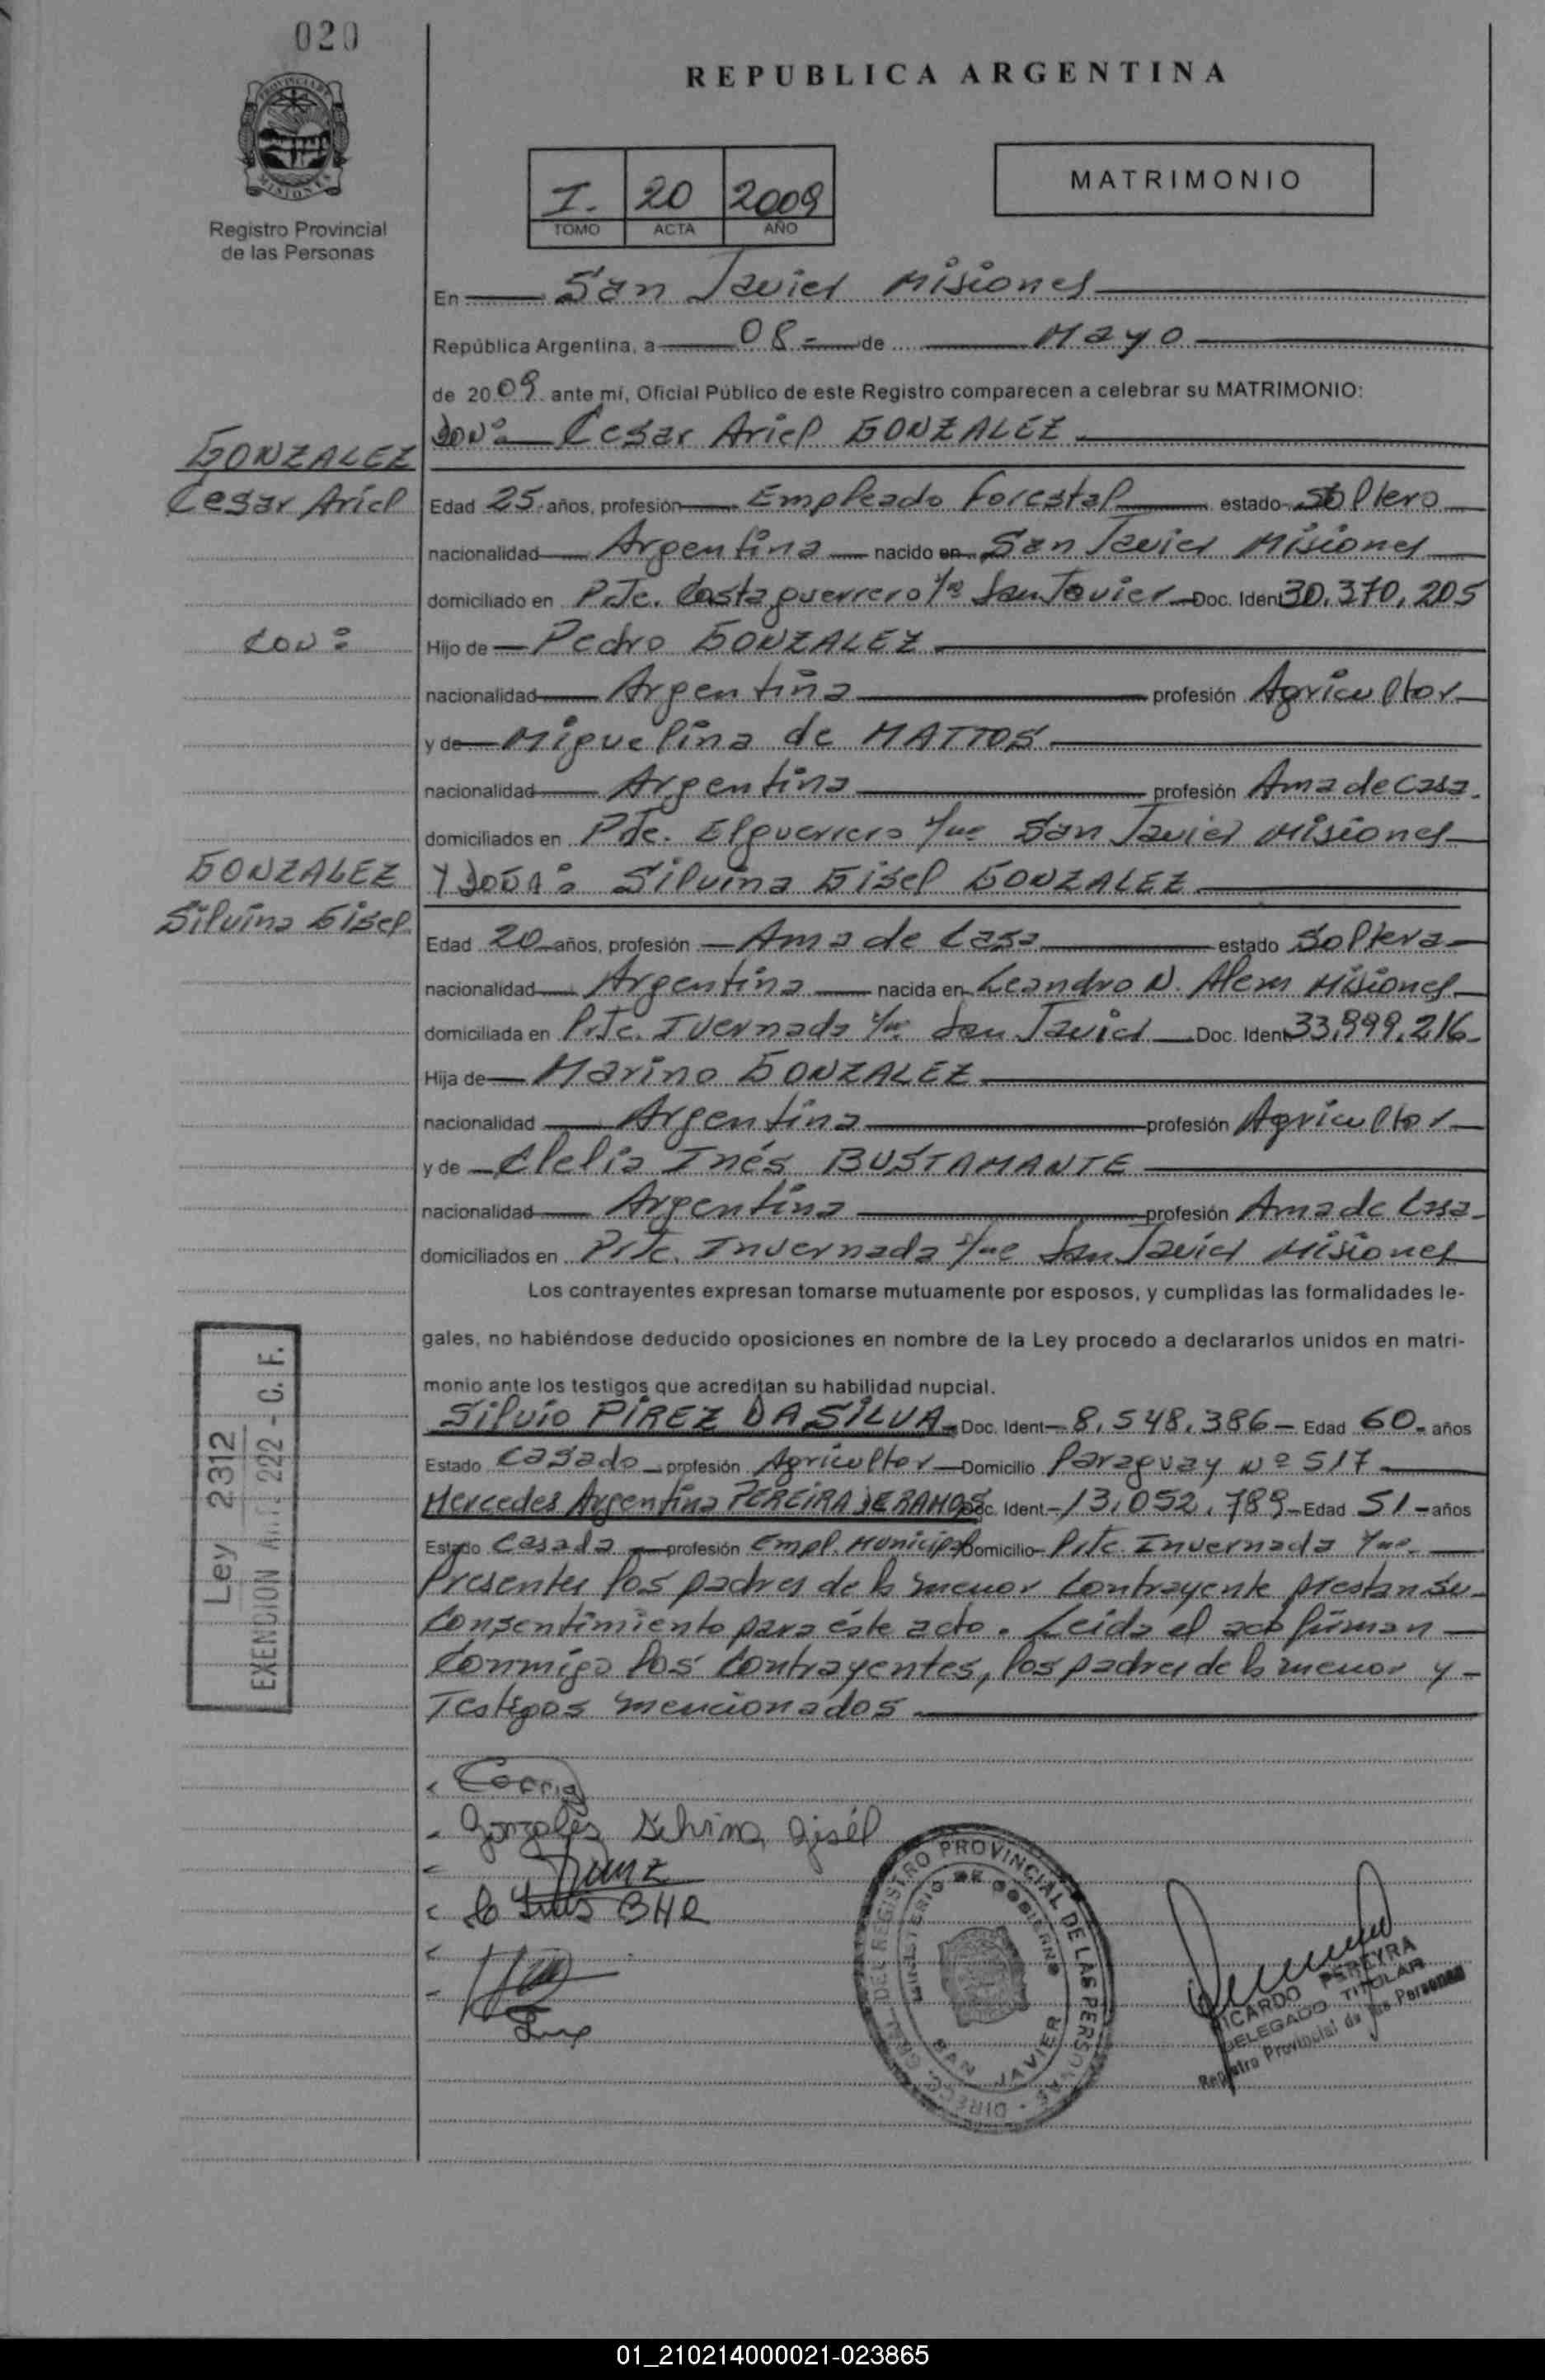 020
REPUBLICA ARGENTINA
PROVINCIA DE
MISIONES
Registro Provincial
de las Personas
I. 20 2009
TOMO ACTA AÑO
MATRIMONIO
En San Javier Misiones
República Argentina, a 08 de Mayo
de 2009 ante mí, Oficial Público de este Registro comparecen a celebrar su MATRIMONIO:
Don: Cesar Ariel GONZALEZ
GONZALEZ
Cesar Ariel
Edad 25 años, profesión Empleado Forestal estado Soltero
nacionalidad Argentina nacido en San Javier Misiones
domiciliado en Pje. Costa guerrero San Javier Doc. Ident 30.370.205
con:
Hijo de Pedro GONZALEZ
nacionalidad Argentina profesión Agricultor
y de Miguelina de MATTOS
nacionalidad Argentina profesión Ama de casa.
domiciliados en El guerrero San Javier Misiones
GONZALEZ
Silvina Gisel
Y DOÑA: Silvina Gisel GONZALEZ
Edad 20 años, profesión Ama de Casa estado Soltera
nacionalidad Argentina nacida en Leandro N. Alem Misiones
domiciliada en Ivernada San Javier Doc. Ident 33.999.216
Hija de Marino GONZALEZ
nacionalidad Argentina profesión Agricultor
y de Clelia Inés BUSTAMANTE
nacionalidad Argentina profesión Ama de Casa
domiciliados en Invernada San Javier Misiones
Los contrayentes expresan tomarse mutuamente por esposos, y cumplidas las formalidades le-
gales, no habiéndose deducido oposiciones en nombre de la Ley procedo a declararlos unidos en matri-
monio ante los testigos que acreditan su habilidad nupcial.
Silvio PIREZ DA SILVA Doc. Ident 8.548.386 Edad 60 años
Estado Casado profesión Agricultor Domicilio Paraguay Nº 517
Mercedes Argentina PEREIRA DE RAMOS Doc. Ident 13.052.789 Edad 51 años
Estado Casada profesión Empl. Municipal Domicilio Invernada
Presentes los padres de la menor contrayente prestan su
consentimiento para éste acto. Leida el acta firman
conmigo los contrayentes, los padres de la menor y
Testigos mencionados
Ley 2312
EXENCION Art. 222 - C. F.
Gonzalez Silvina Gisél
REGISTRO PROVINCIAL DE LAS PERSONAS
MINISTERIO DE GOBIERNO
SAN JAVIER
RICARDO PEREYRA
DELEGADO TITULAR
Registro Provincial de las Personas
01_210214000021-023865